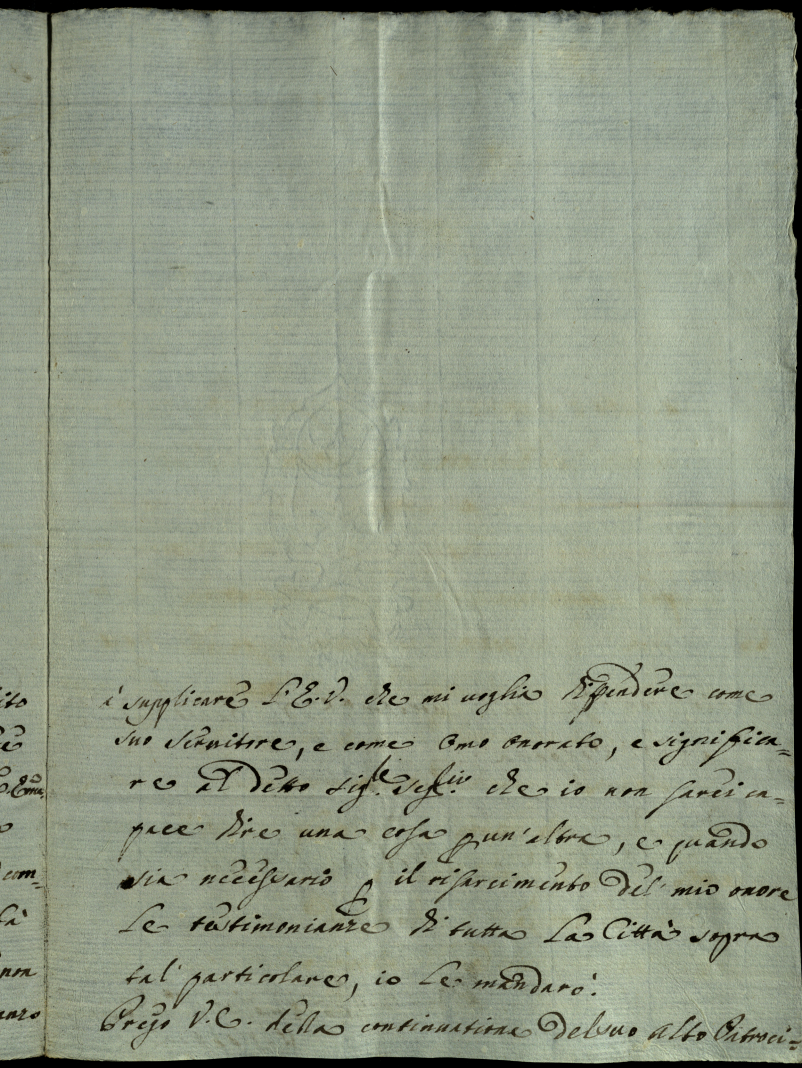 è supplicare l'E.V. che mi voglia difendere come
suo servitore, e come Omo onorato, e significa=
re al detto Sig.le che io non sarei ca=
pace dire una cosa p un'altra, e quando
sia necessario p il risarcimento del' mio onore
Le testimonianze di tutta La Città sopra
tal' particolare, io Le mandarò.
Prego V.E. della continuatione del suo alto Patroci=
ito
com=
non